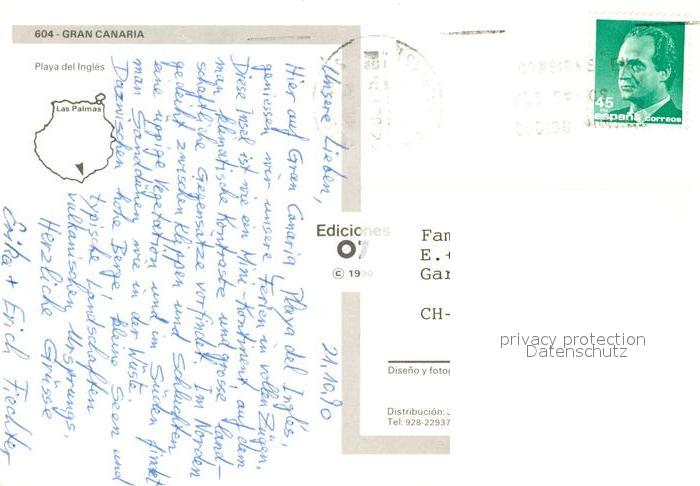 604 - GRAN CANARIA
Playa del Inglés
Las Palmas
21.10.90
Unsere Lieben,
Hier auf Gran Canaria, Playa del Inglés,
geniessen wir unsere Ferien in vollen Zügen.
Diese Insel ist wie ein Mini-Kontinent, auf dem
man klimatische Kontraste und grosse land-
schaftliche Gegensätze vorfindet. Im Norden
gedeiht zwischen Klippen und Schluchten
eine üppige Vegetation und im Süden findet
man Sanddünen wie in der Wüste.
Dazwischen hohe Berge, kleine Seen und
typische Landschaften
vulkanischen Ursprungs.
Herzliche Grüsse
Erika + Erich Fechter
45
españa correos
Ediciones
07
© 1990
Fam
E.+
Gar
CH-
privacy protection
Datenschutz
Diseño y fotog
Distribución:
Tel: 928-22937